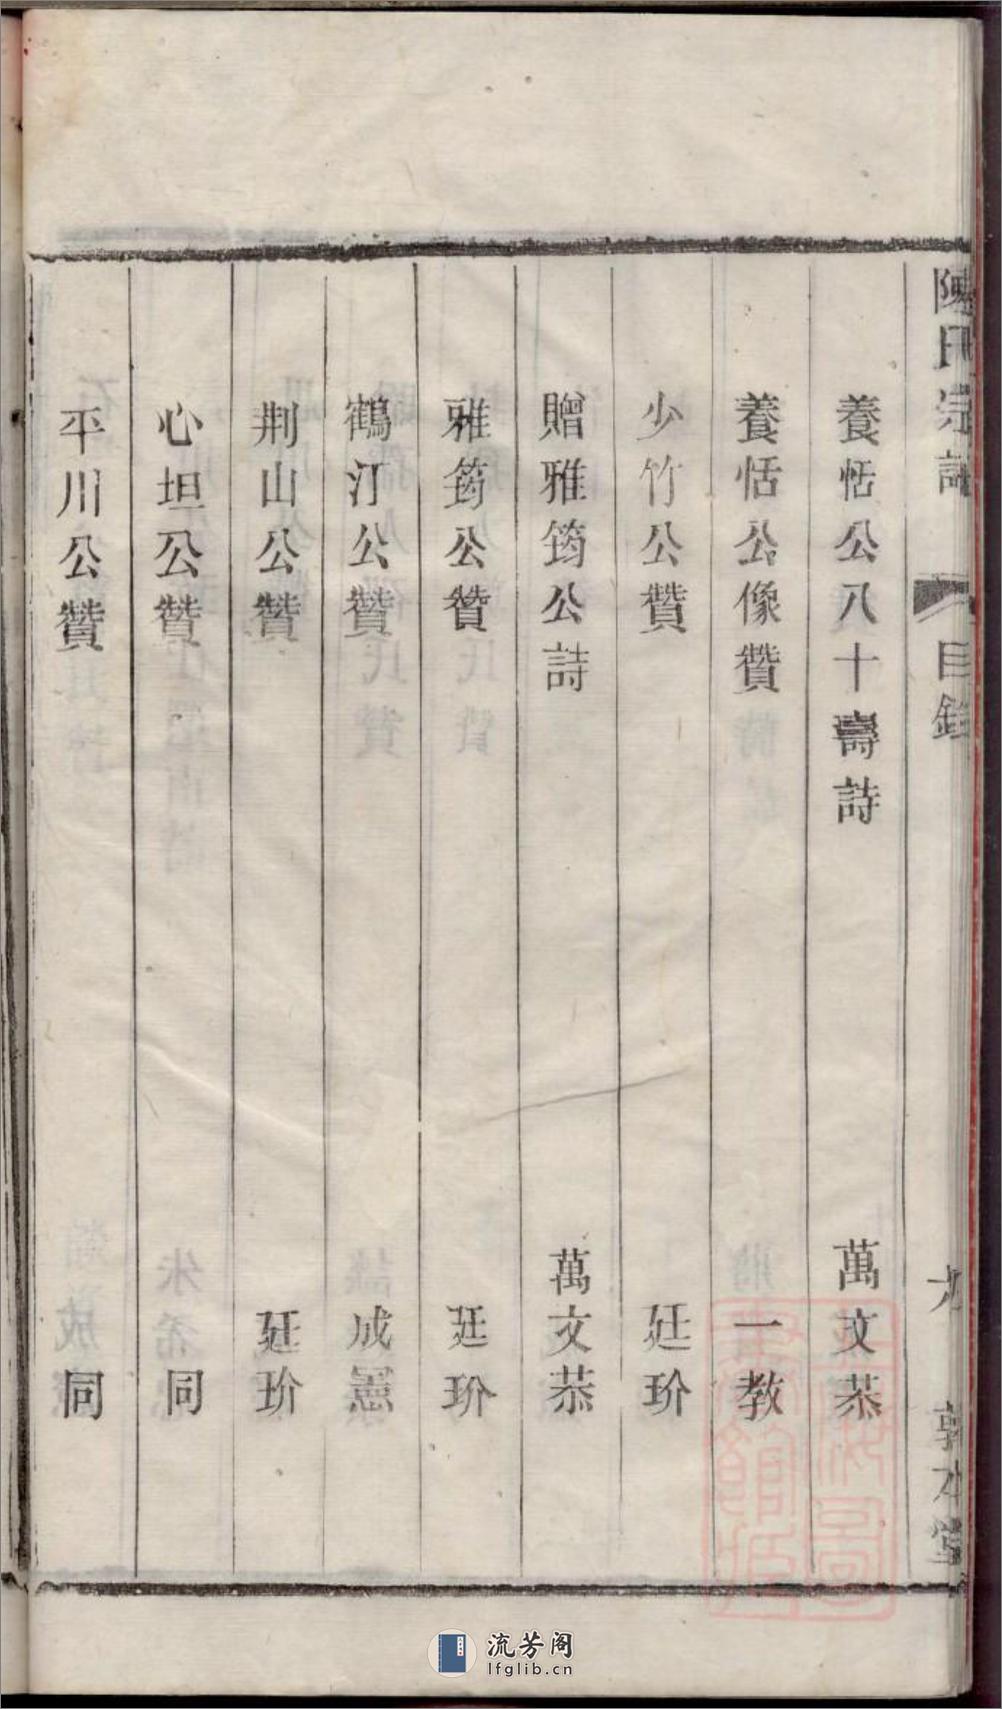 陳氏宗譜
目錄
九
敦本堂
養恬公八十壽詩 萬文恭
養恬公像贊 一教
少竹公贊 廷玠
贈雅筠公詩 萬文恭
雅筠公贊 廷玠
鶴汀公贊 成憲
荆山公贊 廷玠
心坦公贊 同
平川公贊 同
流芳阁
lfglib.cn